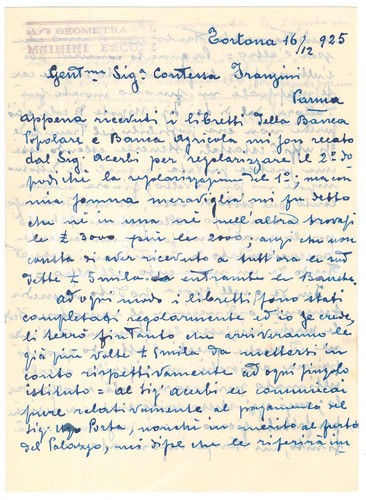 GEOMETRA
Tortona 16/12 925
Gent.ma Sig.a Contessa
Parma
appena ricevuti i libretti della Banca
Popolare e Banca Agricola mi son recato
dal Sig. Acerbi per regolarizzare il 2° do
podiché la regolarizzazione del 1°; ma con
mia somma meraviglia mi fu detto
che né in una né nell'altra trovasi
le £ 3000 più le 2000, anzi che non
consta di aver ricevuto a tutt'ora le sud
dette £ 5mila entrambe le Banche.
ad ogni modo i libretti sono stati
completati regolarmente ed io se crede
li terrò fintanto che arriveranno le
già più volte £ 5mila da mettersi in
conto rispettivamente ad ogni singolo
istituto = al Sig. Acerbi comunicai
pure relativamente al pagamento del
Sig. Ugo Porta, nonché in merito al
del Palazzo, mi disse che le riferirà in